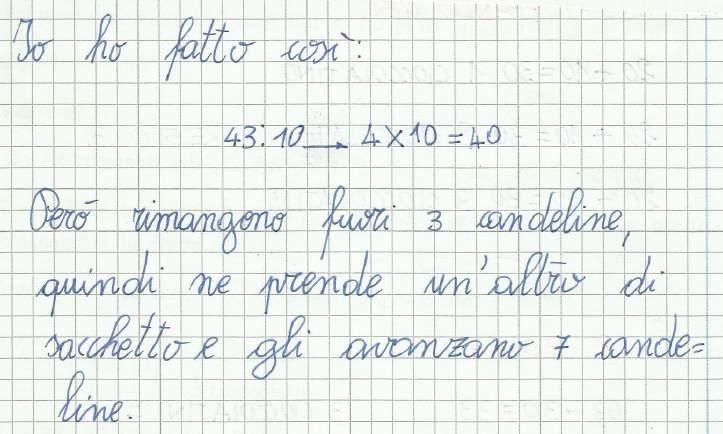 Io ho fatto così:
43:10 → 4×10=40
Però rimangono fuori 3 candeline,
quindi ne prende un'altro di
sacchetto e gli avanzano 7 cande=
line.